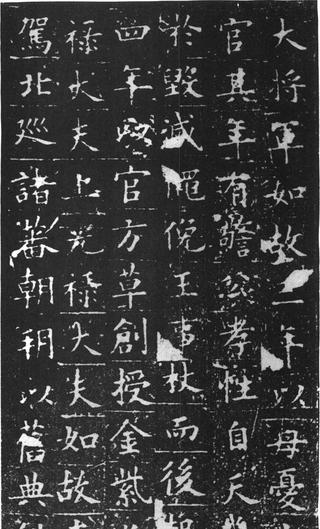 大將軍如故二年以母憂
官其年有公孝性自天
於毀滅僶俛王事杖而後
四年改官方草創授金紫
祿大夫上光祿大夫如故
駕北巡諸蕃朝以舊典